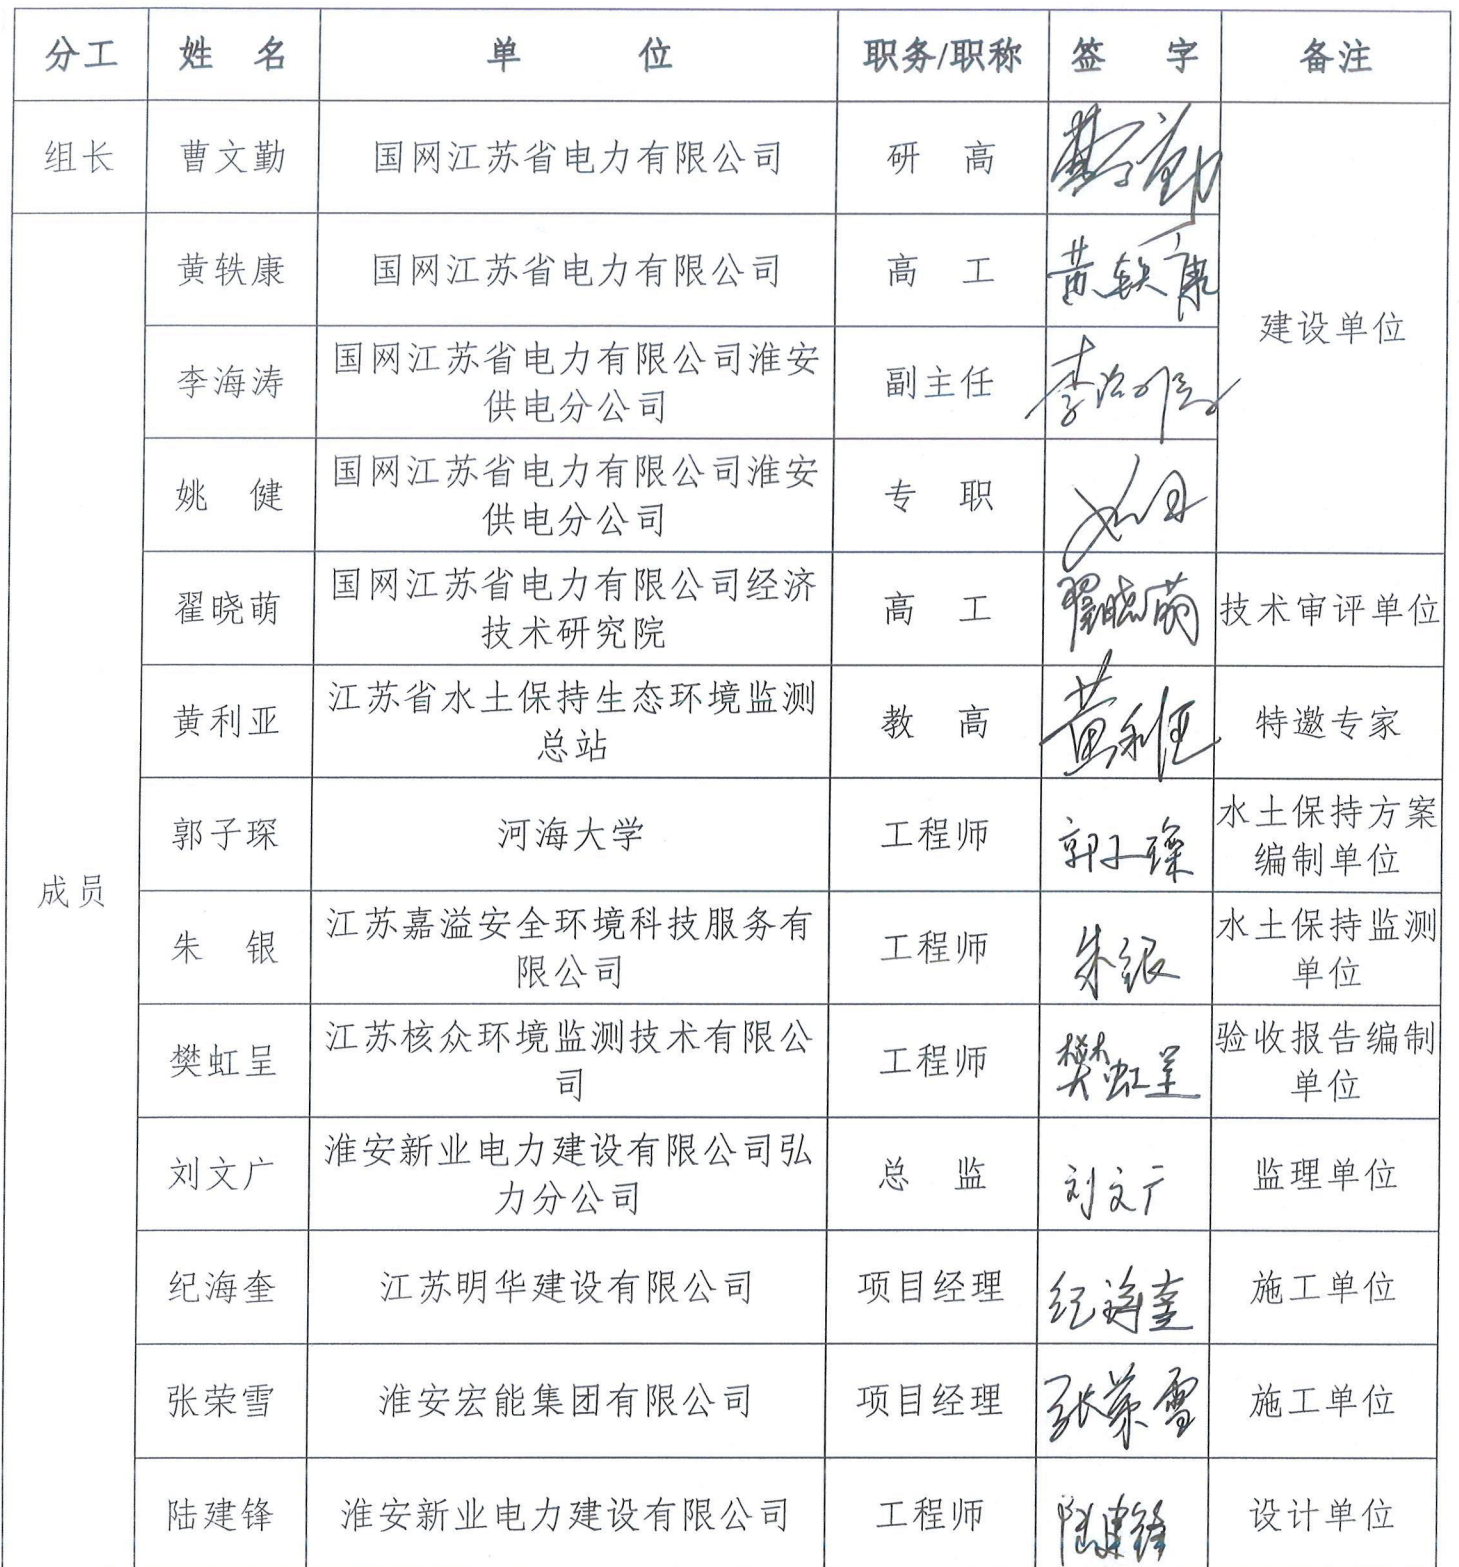 分工 姓 名 单 位 职务/职称 签 字 备注
组长 曹文勤 国网江苏省电力有限公司 研 高 曹文勤
黄轶康 国网江苏省电力有限公司 高 工 黄轶康
建设单位
李海涛 国网江苏省电力有限公司淮安
供电分公司 副主任 李海涛
姚 健 国网江苏省电力有限公司淮安
供电分公司 专 职
翟晓萌 国网江苏省电力有限公司经济
技术研究院 高 工 翟晓萌 技术审评单位
黄利亚 江苏省水土保持生态环境监测
总站 教 高 黄利亚 特邀专家
成员
郭子琛 河海大学 工程师 郭子琛 水土保持方案
编制单位
朱 银 江苏嘉溢安全环境科技服务有
限公司 工程师 朱银 水土保持监测
单位
樊虹呈 江苏核众环境监测技术有限公
司 工程师 樊虹呈 验收报告编制
单位
刘文广 淮安新业电力建设有限公司弘
力分公司 总 监 刘文广 监理单位
纪海奎 江苏明华建设有限公司 项目经理 纪海奎 施工单位
张荣雪 淮安宏能集团有限公司 项目经理 张荣雪 施工单位
陆建锋 淮安新业电力建设有限公司 工程师 陆建锋 设计单位